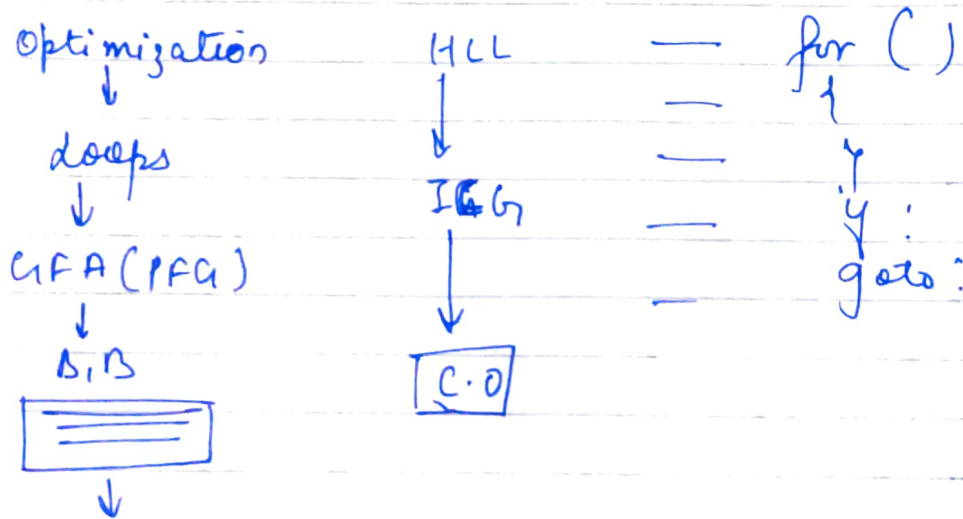 Optimization
↓
Loops
↓
CFA (PFG)
↓
B,B
↓
HLL
↓
ICG
↓
C.O
for ( )
{
}
goto: